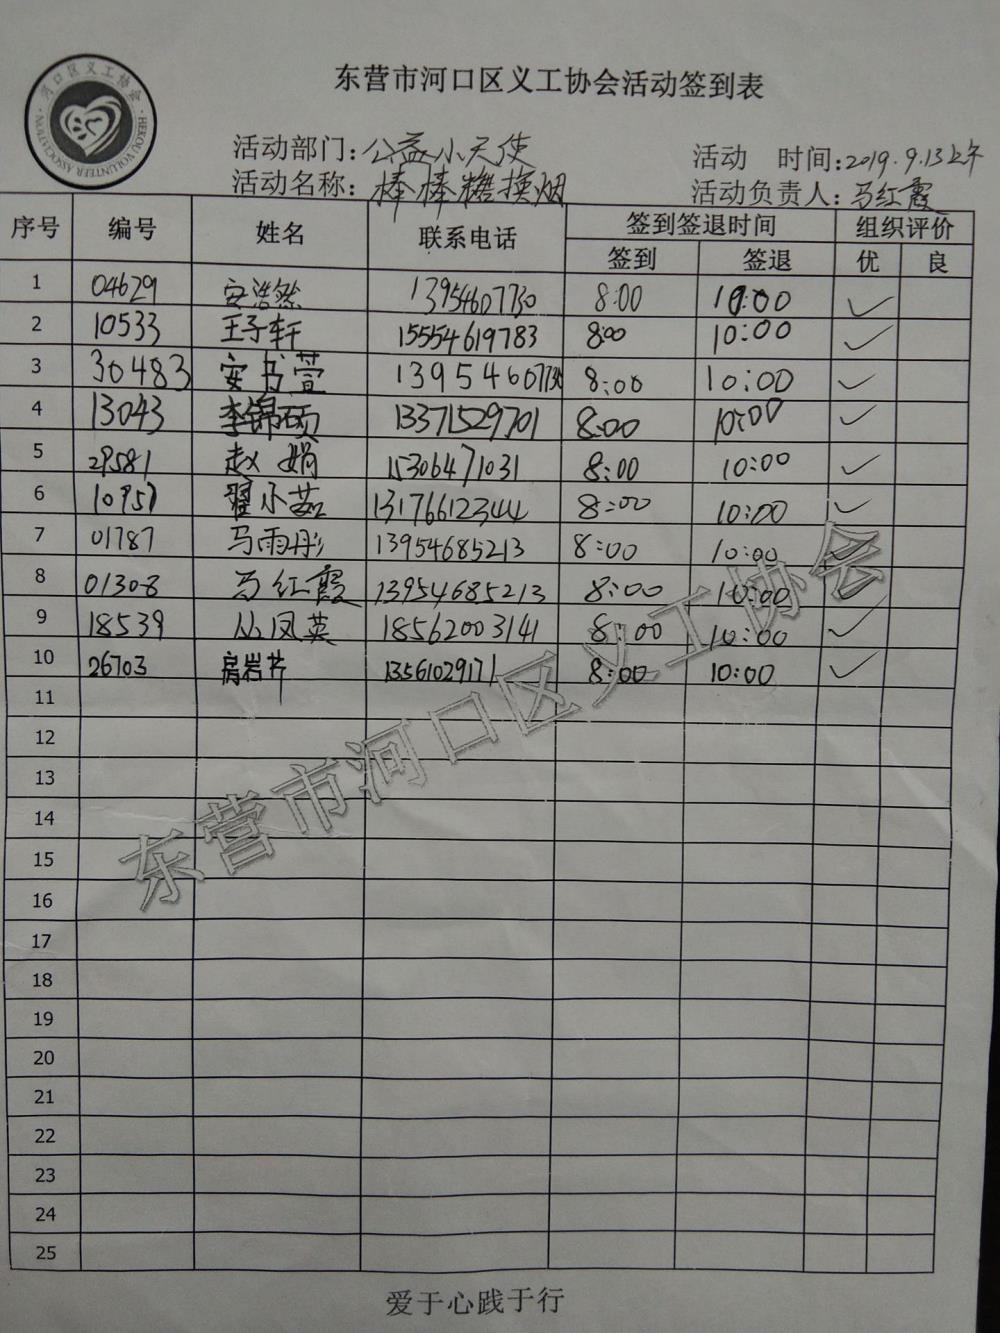 东营市河口区义工协会活动签到表
河口区义工协会
HEKOU VOLUNTEER ASSOCIATION
活动部门：公益小天使 活动 时间：2019.9.13上午
活动名称：棒棒糖换烟 活动负责人：马红霞
序号 编号 姓名 联系电话 签到签退时间 组织评价
签到 签退 优 良
1 04629 安浩然 13954607730 8:00 10:00 ✓
2 10533 王子轩 15554619783 8:00 10:00 ✓
3 30483 安书萱 13954607730 8:00 10:00 ✓
4 13043 李锦硕 13371529701 8:00 10:00 ✓
5 29581 赵娟 15306471031 8:00 10:00 ✓
6 10957 翟小茹 13176612344 8:00 10:00 ✓
7 01787 马雨彤 13954685213 8:00 10:00 ✓
8 01308 马红霞 13954685213 8:00 10:00 ✓
9 18539 丛凤英 18562003141 8:00 10:00 ✓
10 26703 房岩芹 13561029171 8:00 10:00 ✓
11
12
13
14
15
16
17
18
19
20
21
22
23
24
25
东营市河口区义工协会
爱于心践于行